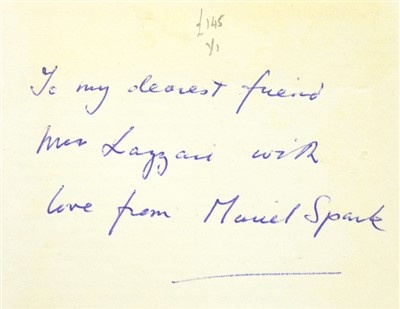 £145
1/1
To my dearest friend
Mrs Lazzari with
love from Muriel Spark